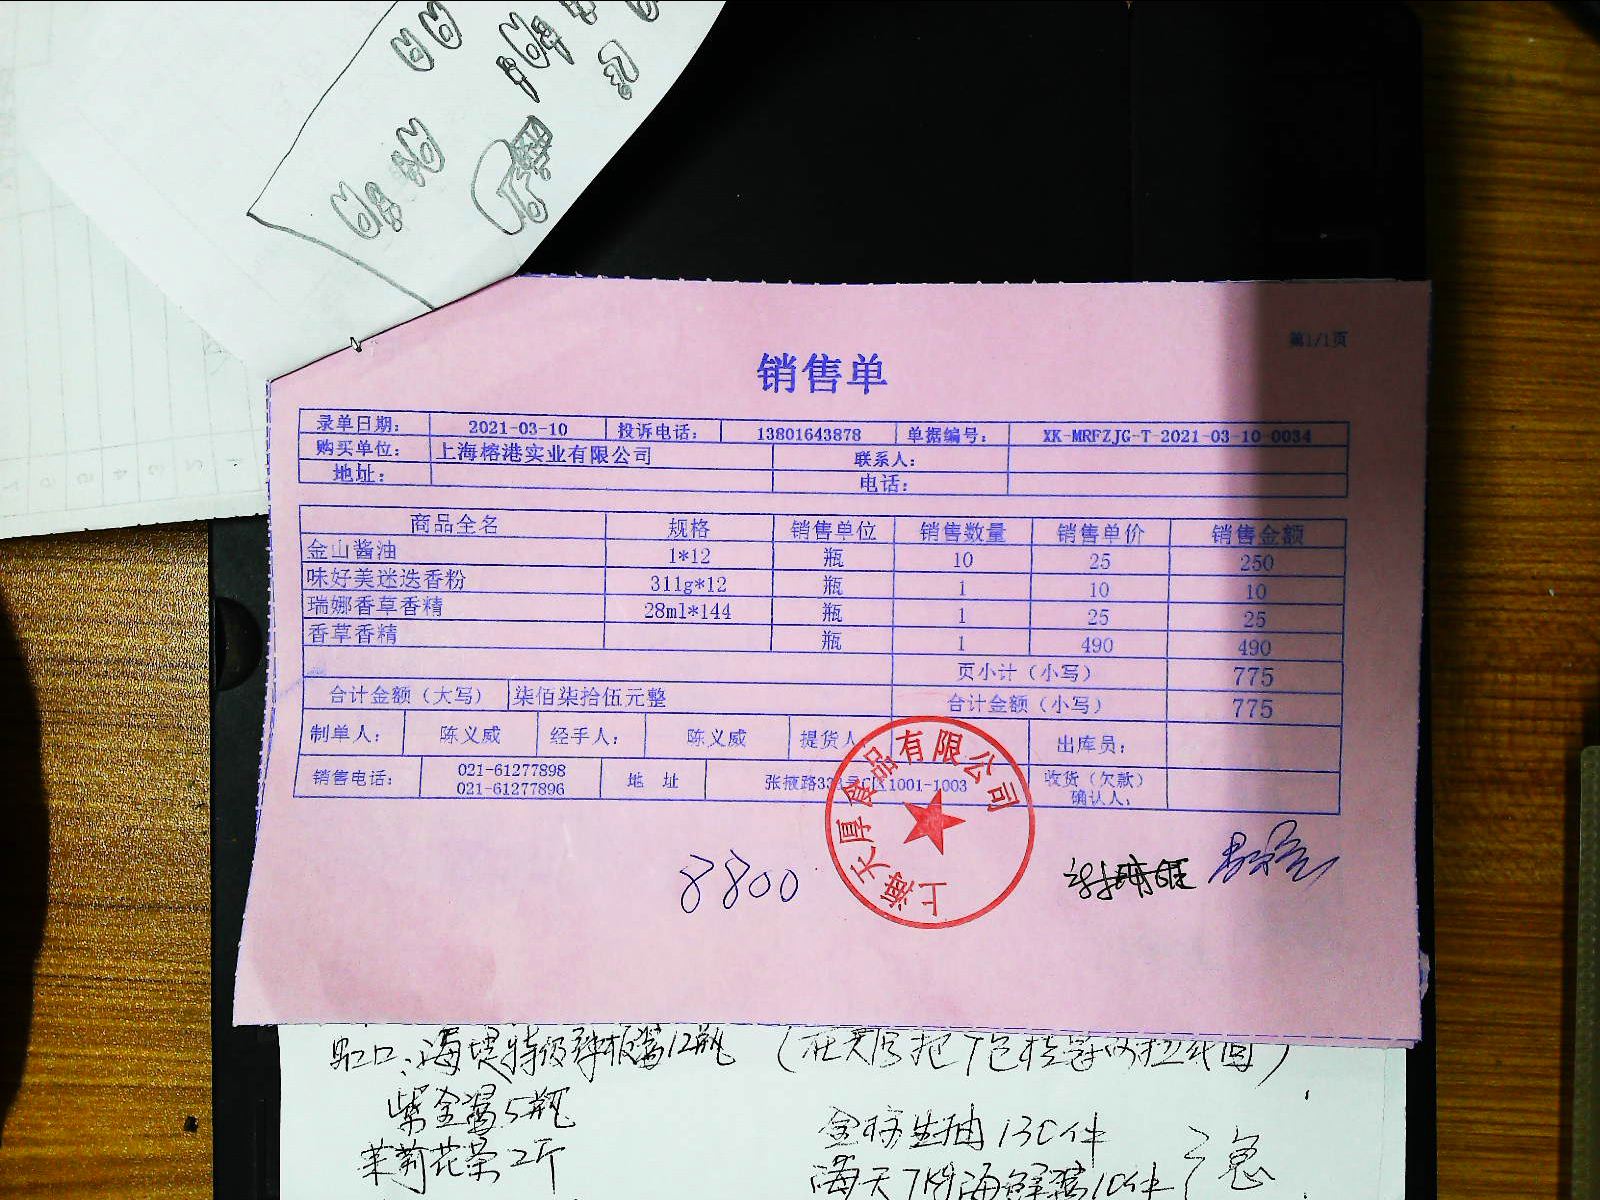 第1/1页
销售单
录单日期： 2021-03-10 投诉电话： 13801643878 单据编号： XK-MRFZJG-T-2021-03-10-0034
购买单位： 上海榕港实业有限公司 联系人：
地址： 电话：
商品全名 规格 销售单位 销售数量 销售单价 销售金额
金山酱油 1*12 瓶 10 25 250
味好美迷迭香粉 311g*12 瓶 1 10 10
瑞娜香草香精 28ml*144 瓶 1 25 25
香草香精 瓶 1 490 490
页小计（小写） 775
合计金额（大写） 柒佰柒拾伍元整 合计金额（小写） 775
制单人： 陈义威 经手人： 陈义威 提货人 出库员：
销售电话： 021-61277898 地 址 张掖路33 号C区1001-1003 收货（欠款）
021-61277896 确认人：
上海天厚食品有限公司
8800
虹口：海堤特级 12瓶
紫金酱5瓶
茉莉花茶2斤
金标生抽130件
海天 海鲜酱10件 急